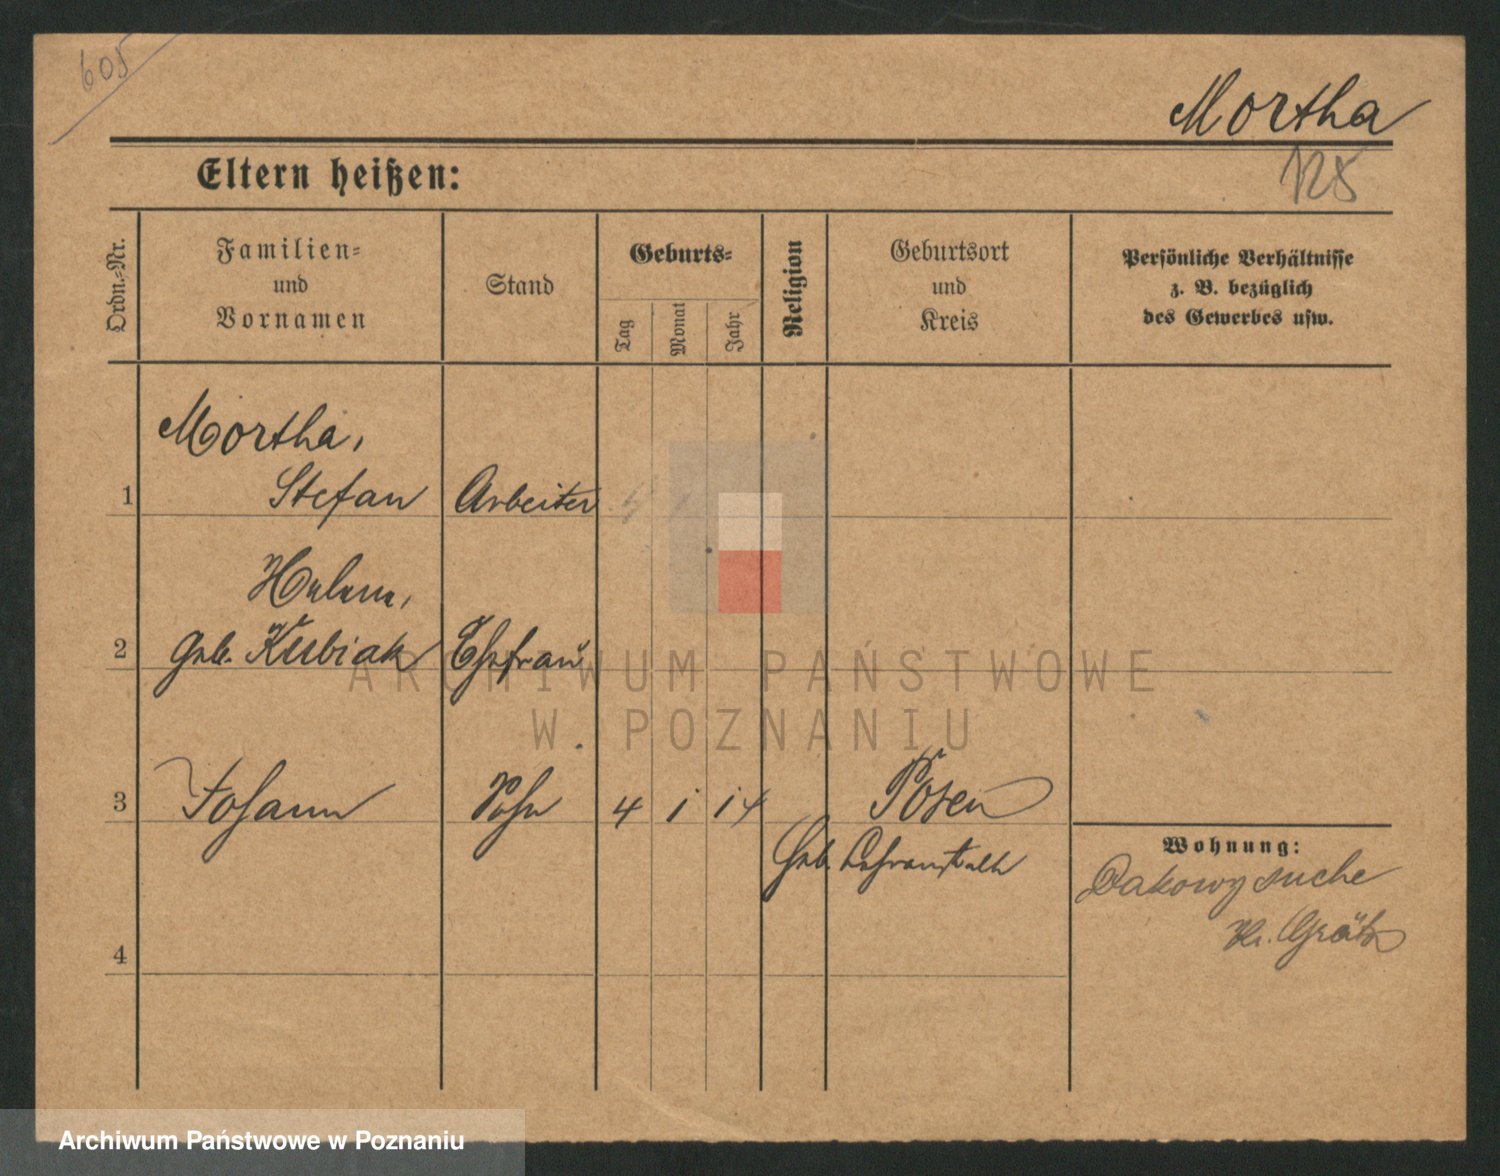 605
Mortha
125
Eltern heißen:
Ordn.-Nr.
Familien-
und
Vornamen
Stand
Geburts-
Tag
Monat
Jahr
Religion
Geburtsort
und
Kreis
Persönliche Verhältnisse
z. B. bezüglich
des Gewerbes usw.
Mortha,
1 Stefan Arbeiter
Helene,
2 geb. Kubiak Ehefrau
ARCHIWUM PAŃSTWOWE
W POZNANIU
3 Johann Sohn 4 1 14 Posen
Geb.
Wohnung:
Dakowy suche
Kr. Grätz
4
Archiwum Państwowe w Poznaniu